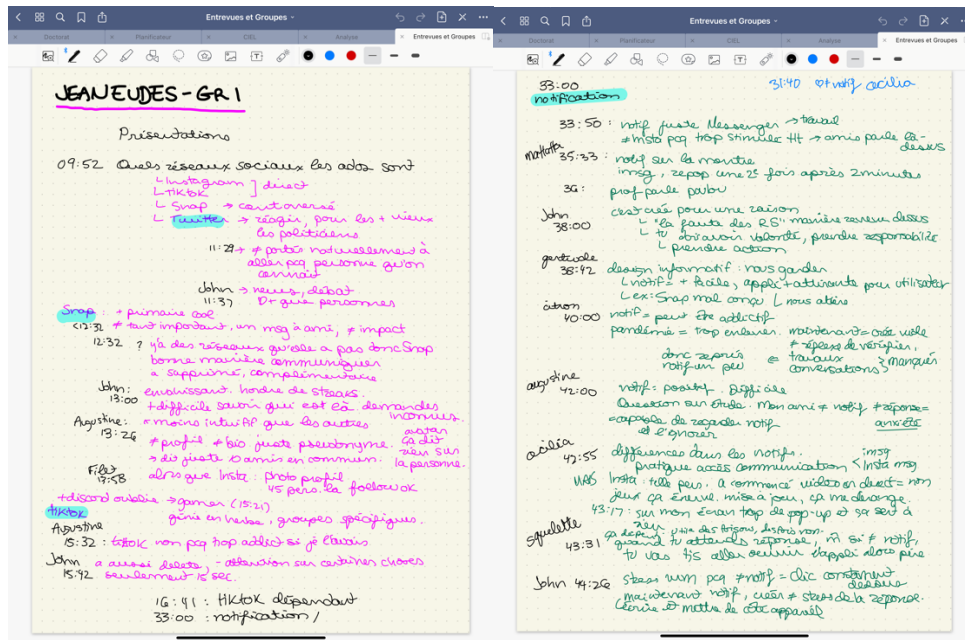 Entrevues et Groupes
Doctorat
Planificateur
CIEL
Analyse
Entrevues et Groupes
JEANEUDES - GR 1
Présentations
09:52 Quels réseaux sociaux les ados sont
Instagram
TikTok
direct
Snap → controversé
Twitter → réagir, pour les + vieux
les politiciens
11:29 → ≠ portée naturellement à
aller pcq personne qu'on
connait
John → news, débat
11:37 D+ que personnes
Snap : + primaire cool
<12:32 ≠ tant important, un msg à ami, ≠ impact
12:32 ? y'a des réseaux qu'elle a pas donc Snap
bonne manière communiquer
a supprimé, complémentaire
John: envahissant. hordre de streaks.
13:00 + difficile savoir qui est là. demandes
inconnus
Augustine: = moins intuitif que les autres
13:26 ≠ profil ≠ bio juste pseudonyme.
avatar
ça dit
rien sur
la personne.
→ dis juste 10 amis en commun.
Filet alors que Insta : photo profil
17:58 45 pers. la follow ok
+ discord oublié → gamer (15:21)
génie en herbe, groupes spécifiques.
tiktok
Augustine
15:32 : tiktok non pcq trop addict si je l'avais
John a aussi delete, - attention sur certaines choses
15:42 seulement 15 sec.
16:41 : tiktok dépendant
33:00 : notification /
Entrevues et Groupes
Doctorat
Planificateur
CIEL
Analyse
Entrevues et Groupes
33:00
31:40 + notif cecilia
notification
33:50 : notif juste Messenger → travail
≠ insta pcq trop stimulé → amis parle là-
dessus
35:33 : notif sur la montre
imsg, repop une 2e fois après 2 minutes
36 : prof parle
John c'est créé pour une raison
38:00 "la faute des RS" manière revenir dessus
tu dois avoir volonté, prendre responsabilité
prendre action
gertrude
38:42 design informatif : nous garder
notif = + facile, appli + attirante pour utilisater
ex: Snap mal conçu
nous
citron
40:00 notif = peut être addictif
pandémie = trop enlever. maintenant = crée vide
≠ réflexe de vérifier,
donc repris
notif un peu
travaux
conversations
manqués
augustine
42:00 notif = positif. Difficile
Question sur étude. Mon ami ≠ notif ≠ réponse =
anxiété
= capable de regarder notif
et l'ignorer
cecilia
42:55 différences dans les notifs.
imsg
Insta msg
pratique accès communication
MAIS Insta : telle pers. a commencé vidéo en direct = non
jeux ça énerve. mise à jour, ça me dérange.
43:17 : sur mon écran trop de pop-up et ça sert à
rien
squelette
43:31 ça dépend
quand tu attends réponse, m̂ si ≠ notif,
tu vas tjs aller ouvrir l'appli alors pire
John 44:26 stress um pcq ≠ notif = clic constamment
dessus
maintenant notif, créer ≠ stress de la réponse.
L'écrire et mettre de côté appareil